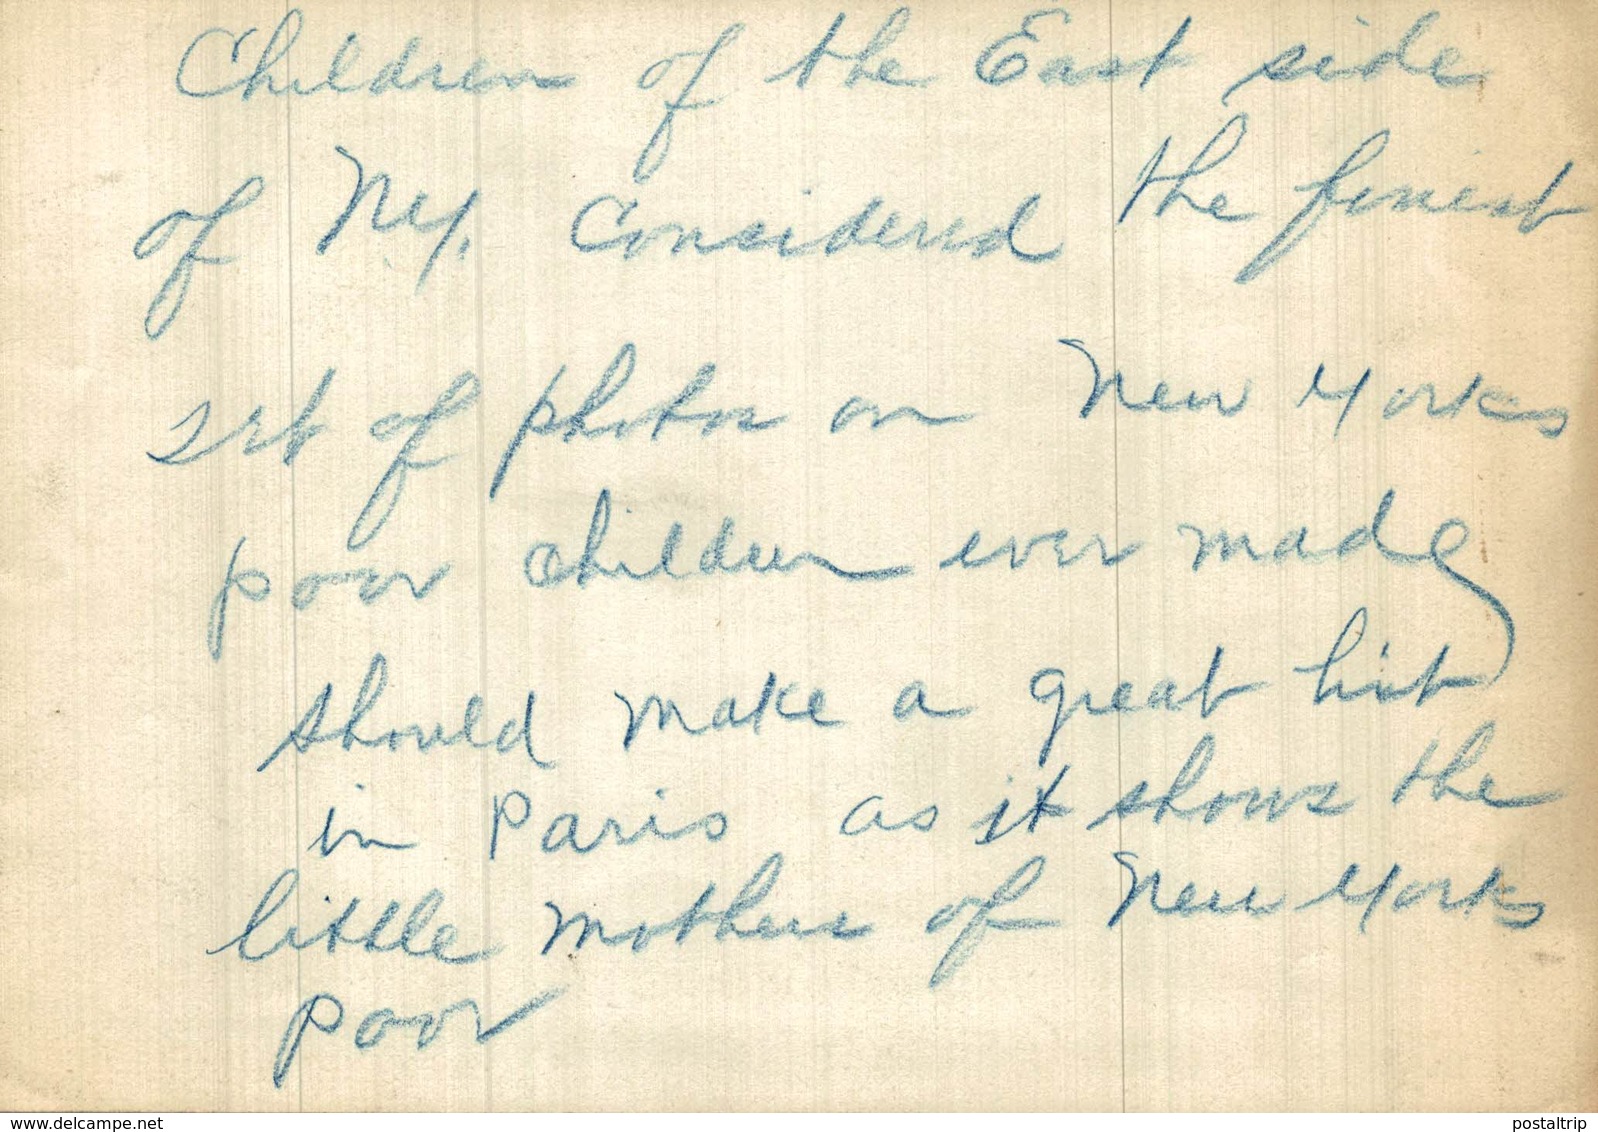 Children of the East side
of Ny. Considered the finest
set of photos on New Yorks
poor children ever made
should make a great hit
in Paris as it shows the
little mothers of New Yorks
poor
delcampe.net
postaltrip